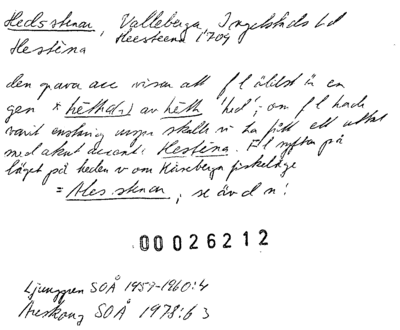 Hedsstenar, Valleberga Ingelstads hd
Hestèna Heesteena 1709
den grava acc visar att f l äldst är en
gen *hēth(a) av hēth 'hed'; om f l hade
varit enstavig skulle vi ha fått ett uttal
med akut accent: Hesténa. F l syftar på
läget på heden v om Kåseberga fiskeläge
= Ales stenar, se äv d n!
00026212
Ljunggren SOÅ 1957-1960:4
Areskoug SOÅ 1978:63